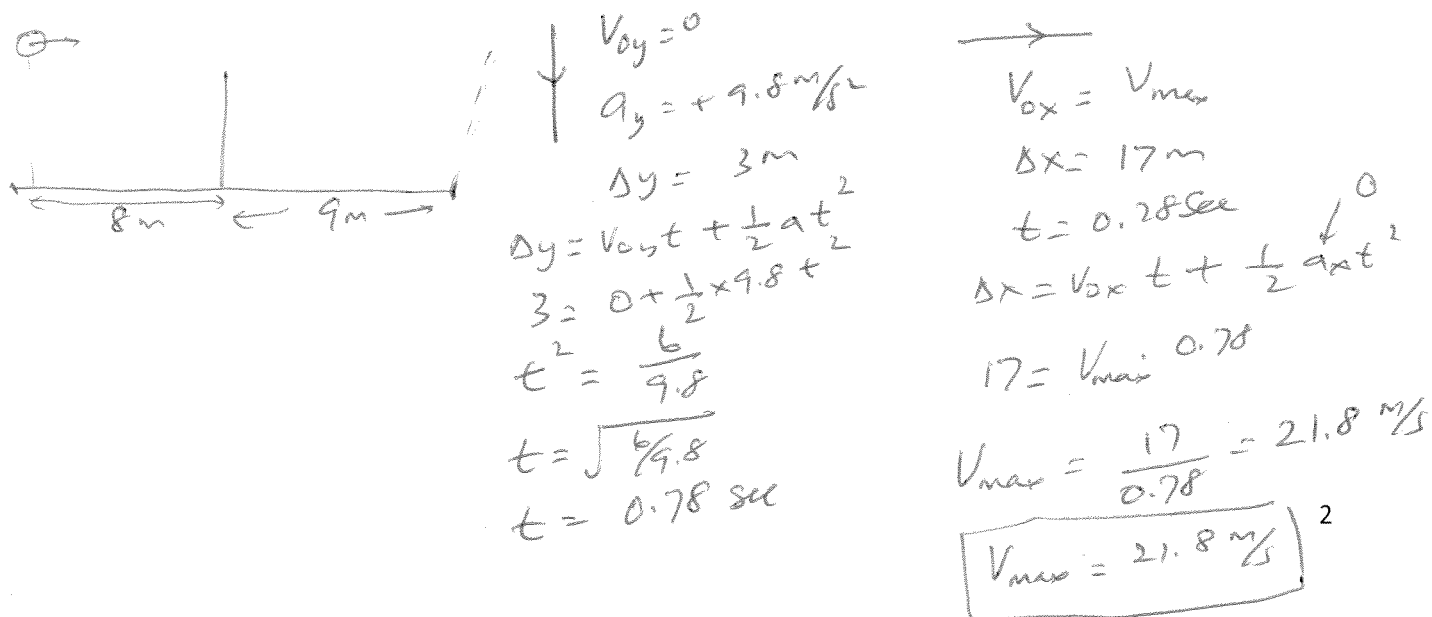 8m
9m
V₀y = 0
a_y = + 9.8 m/s²
Δy = 3m
Δy = V₀y t + 1/2 a t²
3 = 0 + 1/2 × 9.8 t²
t² = 6/9.8
t = √6/9.8
t = 0.78 sec
V₀x = Vmax
Δx = 17m
t = 0.28 Sec
0
Δx = V₀x t + 1/2 aₓ t²
17 = Vmax 0.78
Vmax = 17/0.78 = 21.8 m/s
Vmax = 21.8 m/s
2